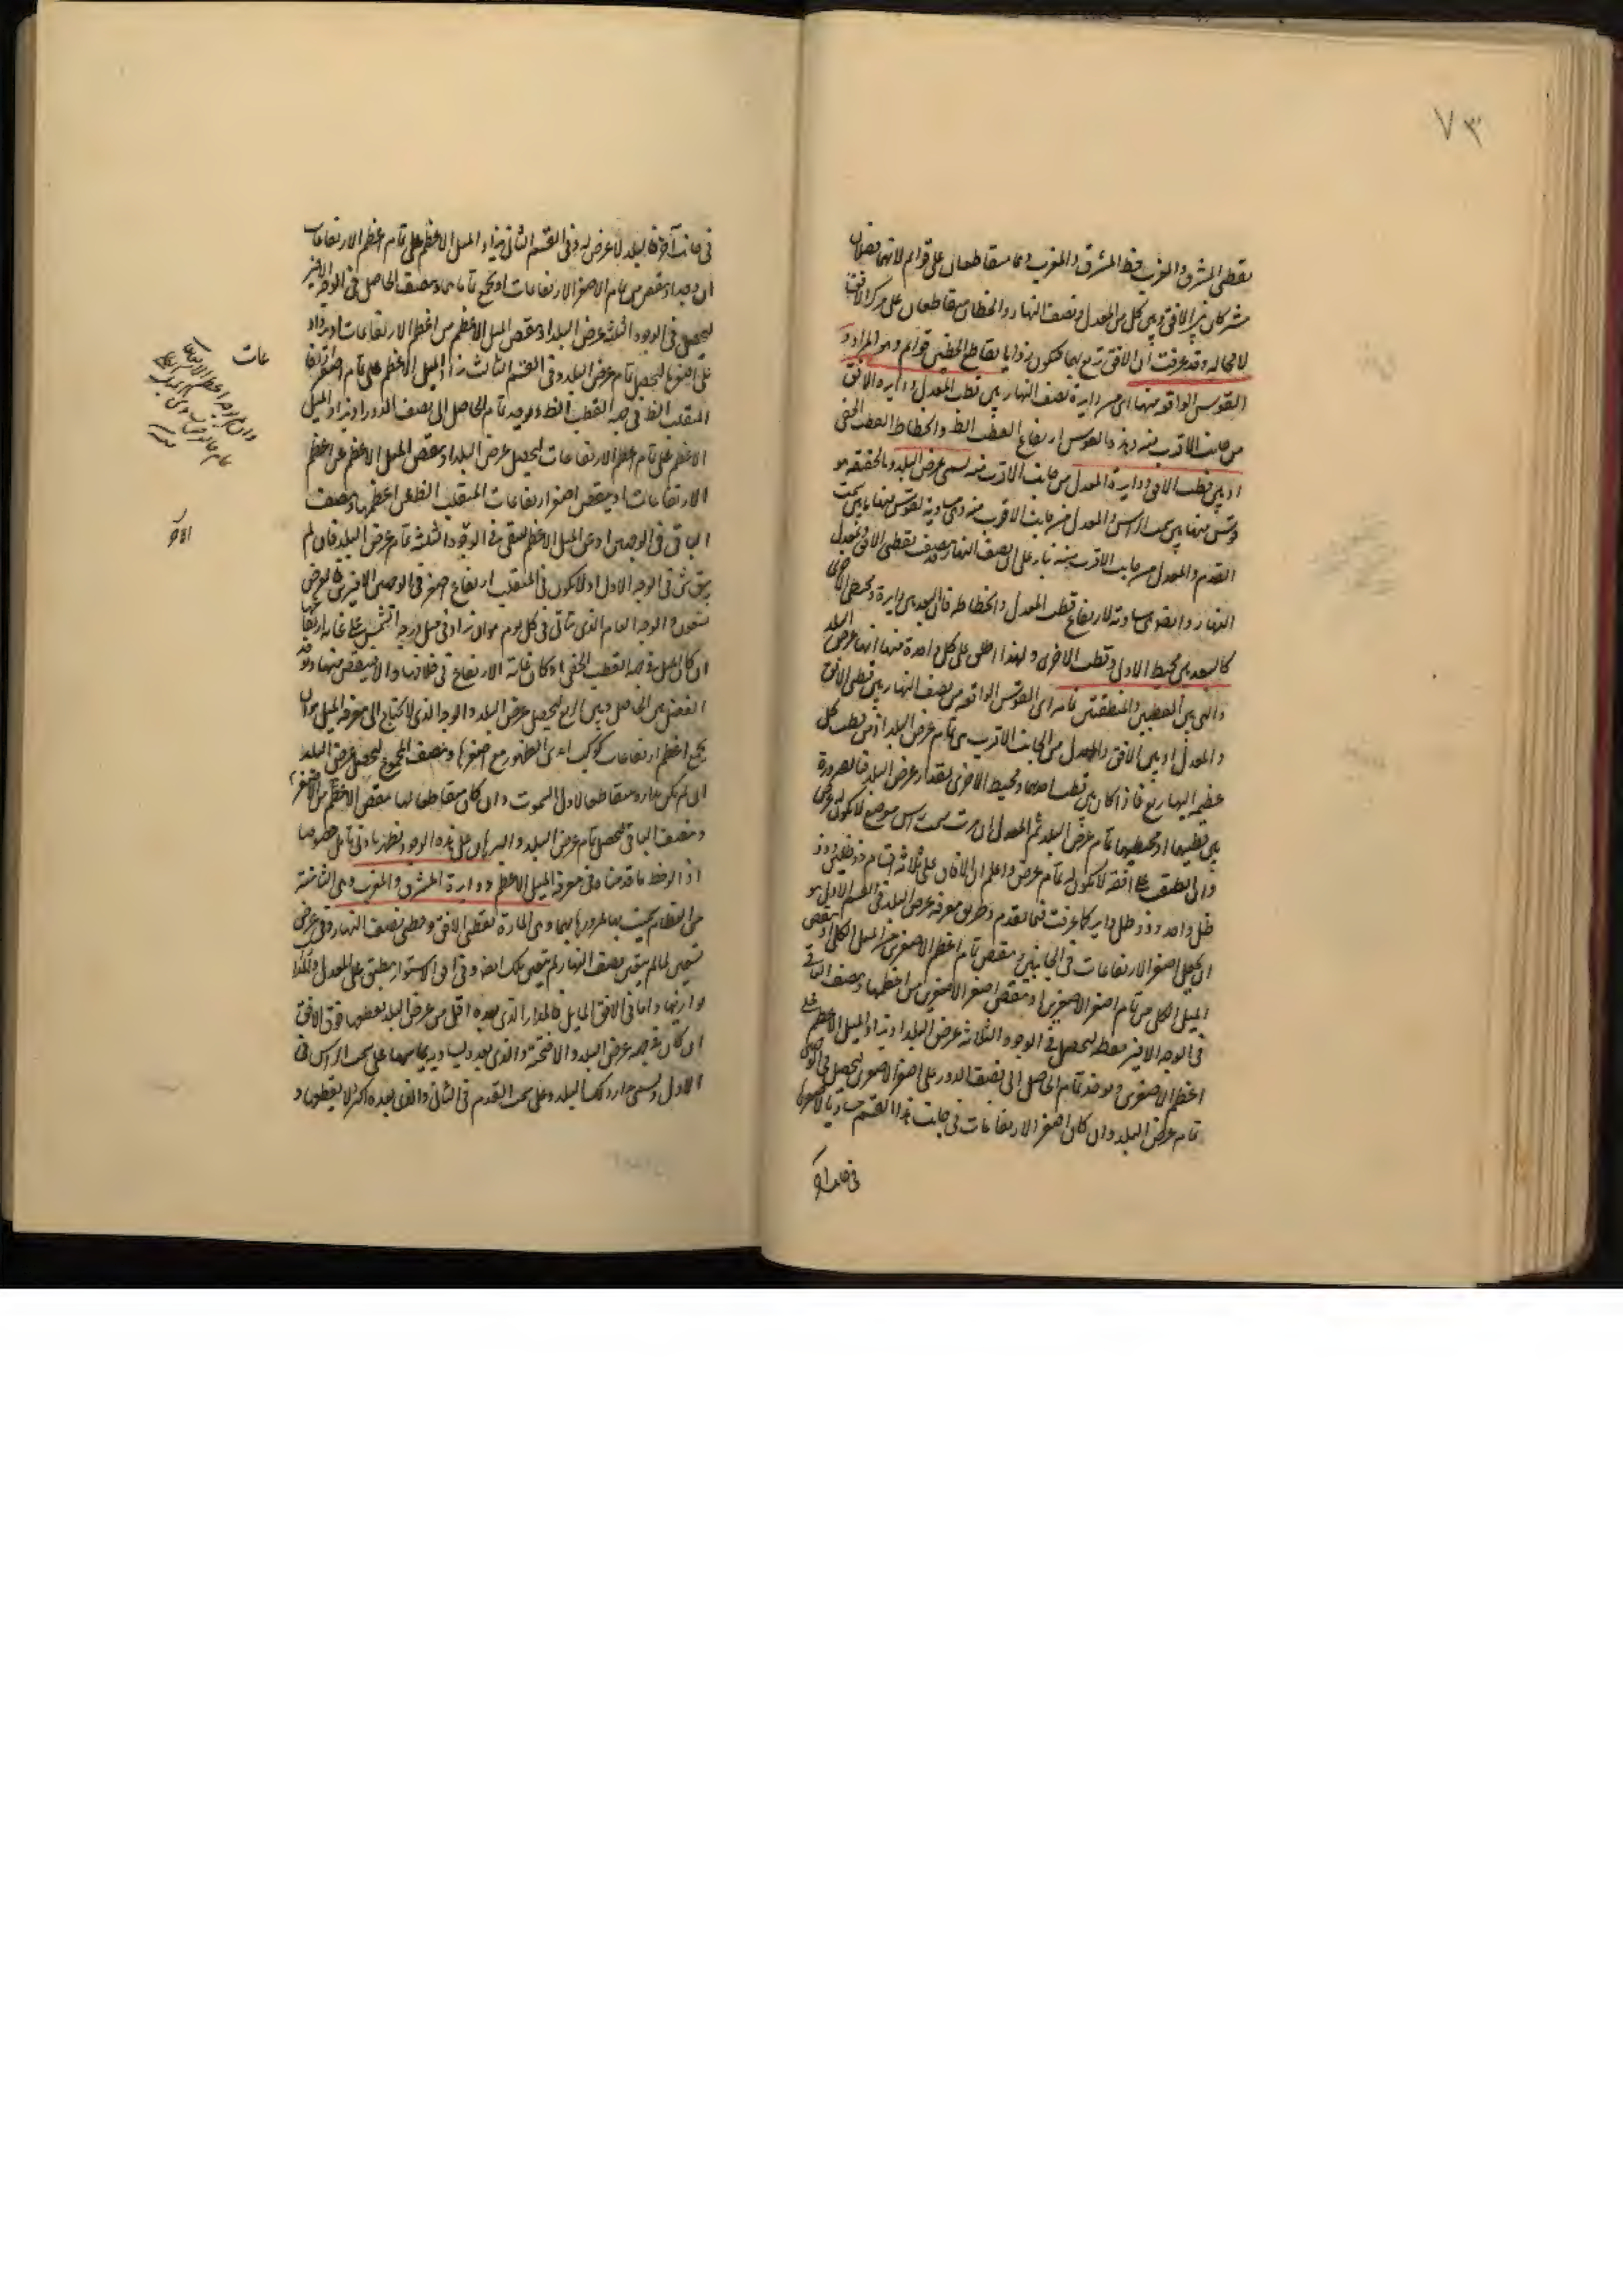 ٧٣
نقطتى المشرق والمغرب خط المشرق والمغرب وهما متقاطعان على قوائم لانهما فصلان
مشتركان بين الافق وبين كل من المعدل ونصف النهار والخطان متقاطعان على مركز الافق
لا محاله وقد عرفت ان الافق تربع بهما فتكون زوايا تقاطع الخطين قوائم وهو المراد و
القوس الواقعه منها اى من دايرة نصف النهار بين قطب المعدل ودايرة الافق
من جانب الاقرب منه وهذه القوس ارتفاع القطب الظ وانحطاط القطب الخفى
او بين قطب الافق ودايرة المعدل من جانب الاقرب منه يسمى عرض البلد وبالحقيقه هو
قوس منها بين سمت الراس والمعدل من جانب الاقرب منه وهى مساوية لقوس منها بين سمت
القدم والمعدل من جانب الاقرب منه بناء على نصف النهار نقطتى الافق ومعدل
النهار وايضا هى مساوية لارتفاع قطب المعدل وانحطاطه فان البعد بين دايرة ومحيط الاخرى
كالبعد بين محيط الاولى وقطب الاخرى ولهذا اطلق على كل واحدة منها انها عرض البلد
والتى بين القطبين والمنطقتين تمامه اى القوس الواقعه من نصف النهار بين قطبى الافق
والمعدل او بين الافق والمعدل من الجانب الاقرب هى تمام عرض البلد اذ من قطب كل
عظيمه اليها ربع فاذا كان بين قطب احدهما ومحيط الاخرى بمقدار عرض البلد فبالضرورة
بين قطبيهما او محيطيهما تمام عرض البلد ثم المعدل ان مرت بسمت راس موضع لا يكون له عرض
وان انطبق على افقه لا يكون له تمام عرض واعلم ان الافاق على ثلاثة اقسام ذو ظلين وذو
ظل واحد وذو ظل داير كما عرفت فيما تقدم وطريق معرفه عرض البلد فى القسم الاول هو
ان يحصل اصغر الارتفاعات فى الجانبين وينقص تمام اعظم الاصغرين من الميل الكلى او ينقص
الميل الكلى من تمام اصغر الاصغرين او ينقص اصغر الاصغرين من اعظمهما وينصف الباقى
فى الوجه الاخير فقط ليحصل فى الوجوه الثلاثة عرض البلد او يزاد الميل الاعظم على
اعظم الاصغرين ويوخذ تمام الحاصل الى نصف الدور على اصغر الاصغرين ليحصل فى الوجهين
تمام عرض البلد وان كان اصغر الارتفاعات فى جانب هذا القسم مساويا لاصغرها
فى جانب آخر
فى جانب آخر فالبلد لا عرض له وفى القسم الثانى يزاد الميل الاعظم على تمام اعظم الارتفاعات
ان وجد او ينقص من تمام الاصغر الارتفاعات او يجمع تماماهما وينصف الحاصل فى الوجه الاخير
ليحصل فى الوجوه الثلثة عرض البلد او ينقص الميل الاعظم من اعظم الارتفاعات او يزاد
على اصغرها ليحصل تمام عرض البلد وفى القسم الثالث يزاد الميل الاعظم على تمام اصغر ارتفاع
المنقلب الظ فى جهه القطب الظ ويوخذ تمام الحاصل الى نصف الدور او يزاد الميل
الاعظم على تمام اعظم الارتفاعات ليحصل عرض البلد او ينقص الميل الاعظم عن اعظم
الارتفاعات او ينقص اصغر ارتفاعات المنقلب الظ عن اعظمها وينصف
الباقى فى الوجهين او عن الميل الاعظم ليبقى فى الوجوه الثلثة تمام عرض البلد فان لم
يبق شى فى الوجه الاول او لا يكون فى المنقلب ارتفاع اصغر فى الوجهين الاخيرين فالعرض
تسعون والوجه العام الذى يتاتى فى كل يوم هو ان يزاد ميل درجه الشمس على غايه ارتفاعها
ان كان الميل فى جهه القطب الخفى او كان غاية الارتفاع فى خلافها والا فينقص منها ويؤخذ
الفضل بين الحاصل وبين الربع ليحصل عرض البلد والوجه الذى لا يحتاج الى معرفه الميل هو ان
يجمع اعظم ارتفاعات كوكب ابدى الظهور مع اصغرها وينصف المجموع ليحصل عرض البلد
ان لم يكن مداره متقاطعا لاول السموت وان كان متقاطعا لها ينقص الاعظم من الاصغر
وينصف الباقى ليحصل تمام عرض البلد والبرهان على هذه الوجوه يظهر بادنى تامل خصوصا
اذا لوحظ ما قدمناه فى معرفه الميل الاعظم ودايرة المشرق والمغرب وهى الثامنة
من العظام يحيث بها مرورها بهما وهى المارة بقطبى الافق وقطبى نصف النهار وفى عرض
تسعين لما لم يتعين نصف النهار لم يتعين تلك ايضا وفى افق الاستواء ينطبق على المعدل ولهذا
موازيها واما فى الافق المايل فالمدار الذى بعده اقل من عرض البلد يقطعها فوق الافق
ان كان فى جهه عرض البلد والا فتحته والذى بعده يساويه يماسها على سمت الراس فى
الاول ويسمى مدار ذلك البلد وعلى سمت القدم فى الثانى والذى بعده اكثر لا يقطعها و
عات
الآخر